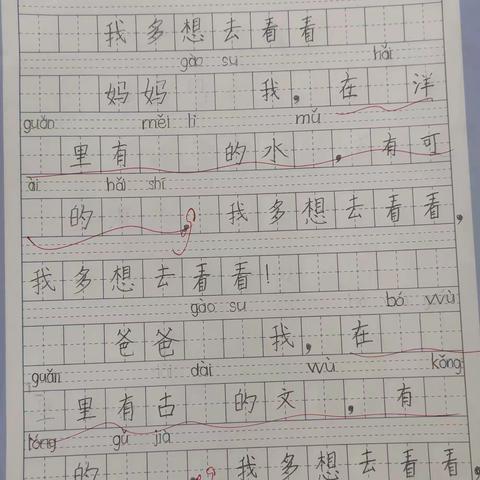 我多想去看看
gào su hǎi
妈妈 我,在 洋
guǎn měi lì mǔ
里有 的水,有可
ài hǎi shī
的 , 我多想去看看,
我多想去看看!
gào su bó wù
爸爸 我,在
guǎn dài wù kǒng
里有古 的文,有
lóng gǔ jià
的 , 我多想去看看,